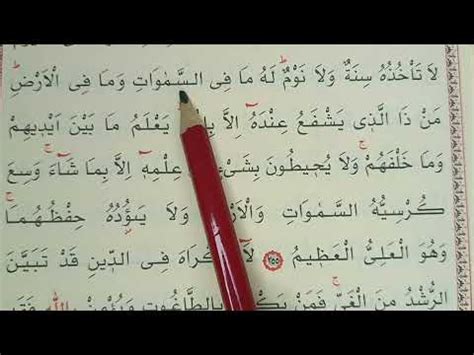 لَا تَأْخُذُهُ سِنَةٌ وَلَا نَوْمٌ لَهُ مَا فِى السَّمٰوَاتِ وَمَا فِى الْاَرْضِ
مَنْ ذَا الَّذٖى يَشْفَعُ عِنْدَهُٓ اِلَّا يَعْلَمُ مَا بَيْنَ اَيْدٖيهِمْ
وَمَا خَلْفَهُمْ وَلَا يُحٖيطُونَ بِشَىْءٍ عِلْمِهٖٓ اِلَّا بِمَا شَٓاءَ وَسِعَ
كُرْسِيُّهُ السَّمٰوَاتِ وَالْاَرْضَ وَلَا يَؤُدُهُ حِفْظُهُمَا
وَهُوَ الْعَلِىُّ الْعَظٖيمُ ٢٥٥ لَٓا اِكْرَاهَ فِى الدّٖينِ قَدْ تَبَيَّنَ
الرُّشْدُ مِنَ الْغَىِّ فَمَنْ بِالطَّاغُوتِ وَيُؤْمِنْ بِاللّٰهِ فَقَدِ